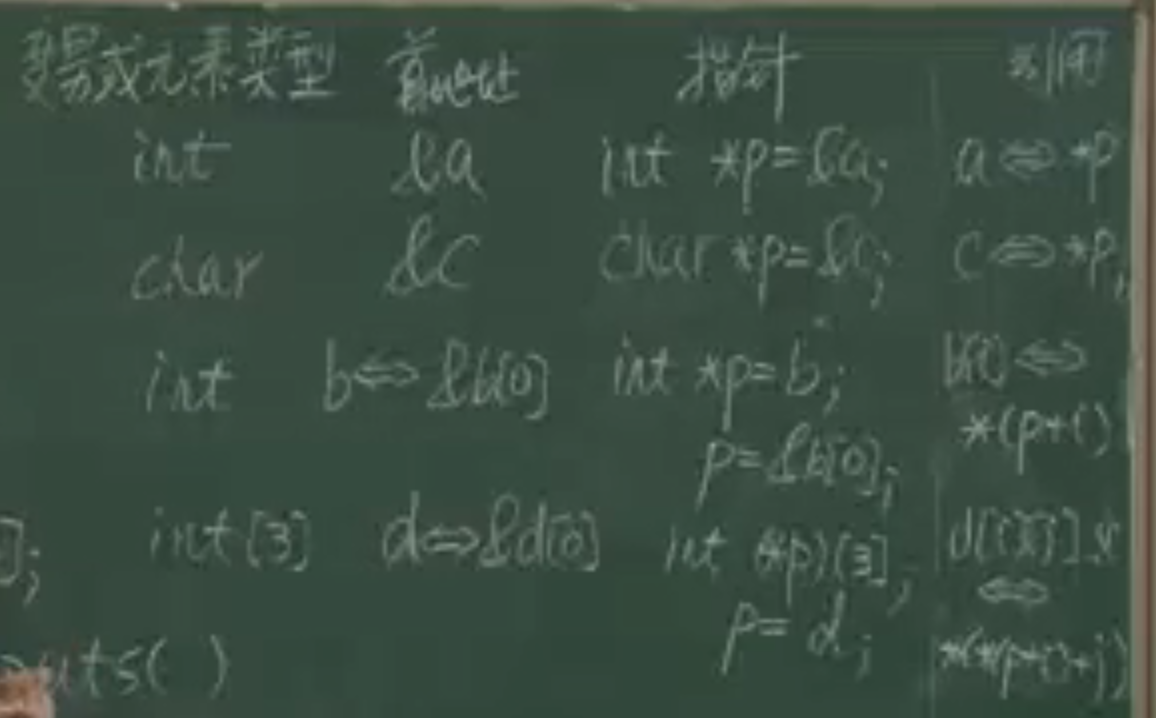 变量或元素类型 首地址 指针 引用
int &a int *p=&a; a⇔*p
char &c char *p=&c; c⇔*p,
int b⇔&b[0] int *p=b; b[i]⇔
p=&b[0]; *(p+i)
]; int[3] d⇔&d[0] int (*p)[3]; d[i][j]
⇔
p=d;
uts( ) *(*(p+i)+j)